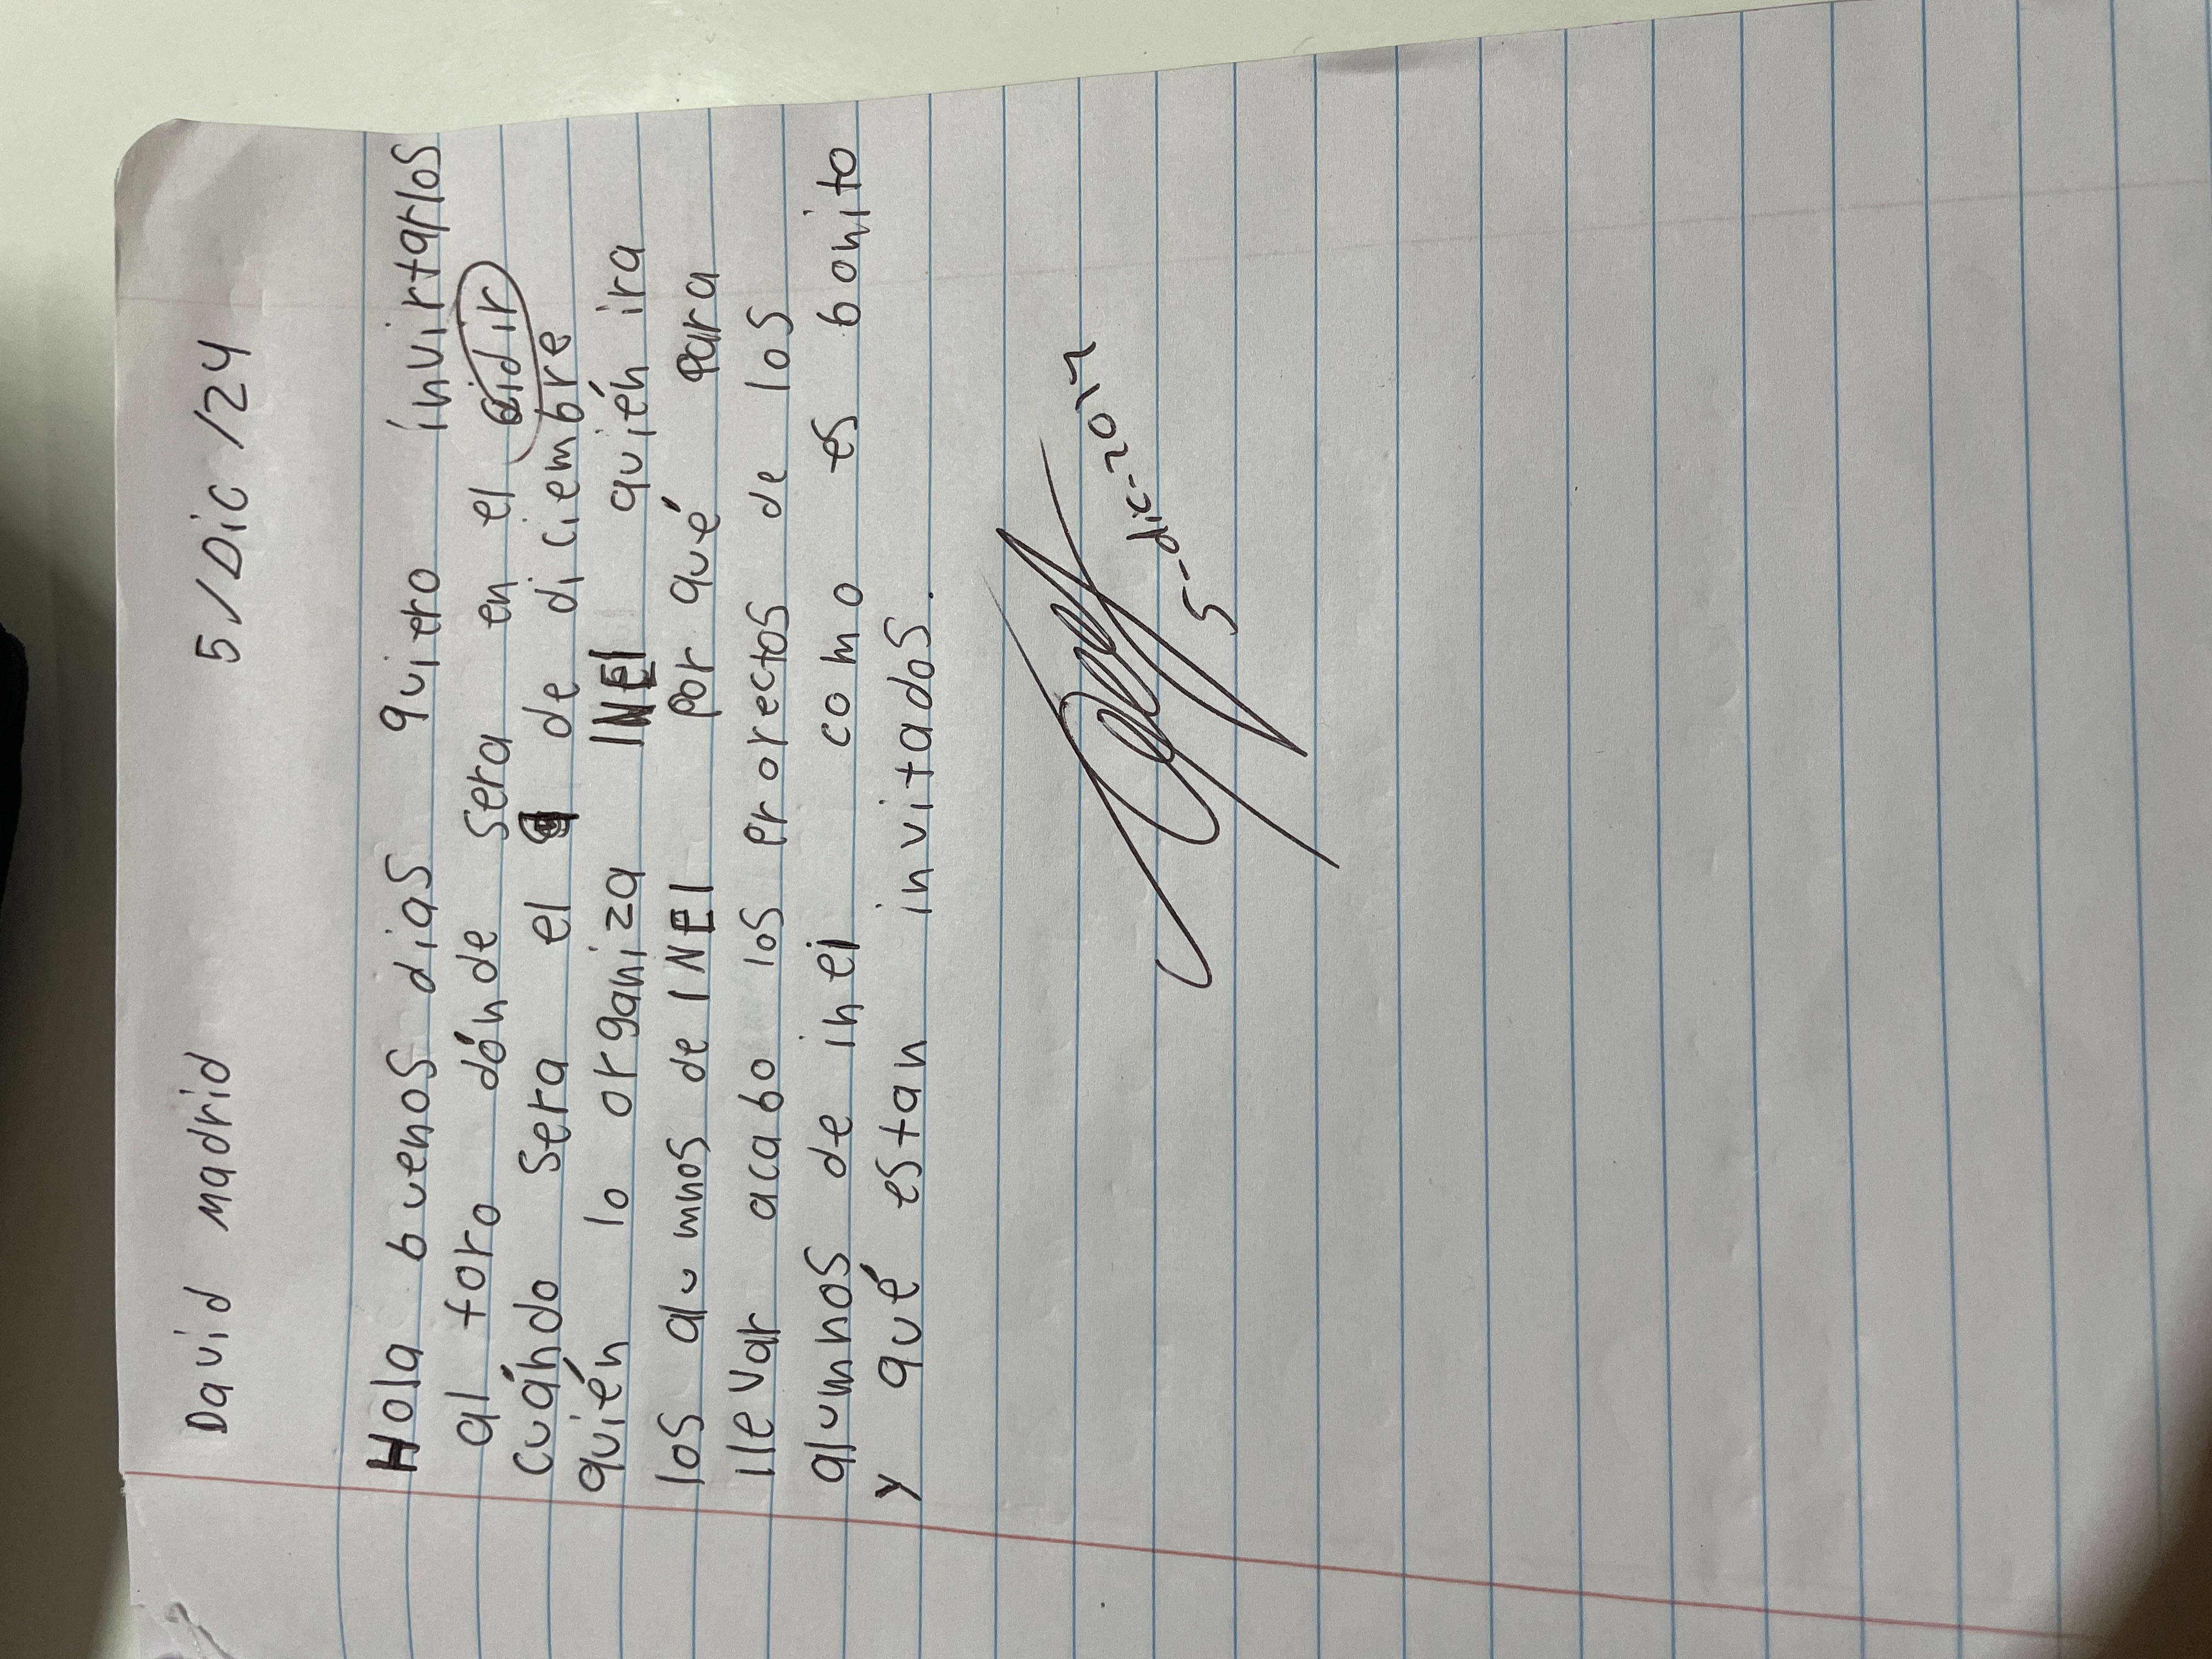 David madrid 5/Dic/24
Hola buenos dias quiero invirtarlos
al foro dónde sera en el cidir
cuándo sera el de diciembre
quién lo organiza INEI quién ira
los alumnos de INEI por qué para
llevar acabo los prorectos de los
alumnos de inei como es bonito
y qué estan invitados.
5-dic-2024